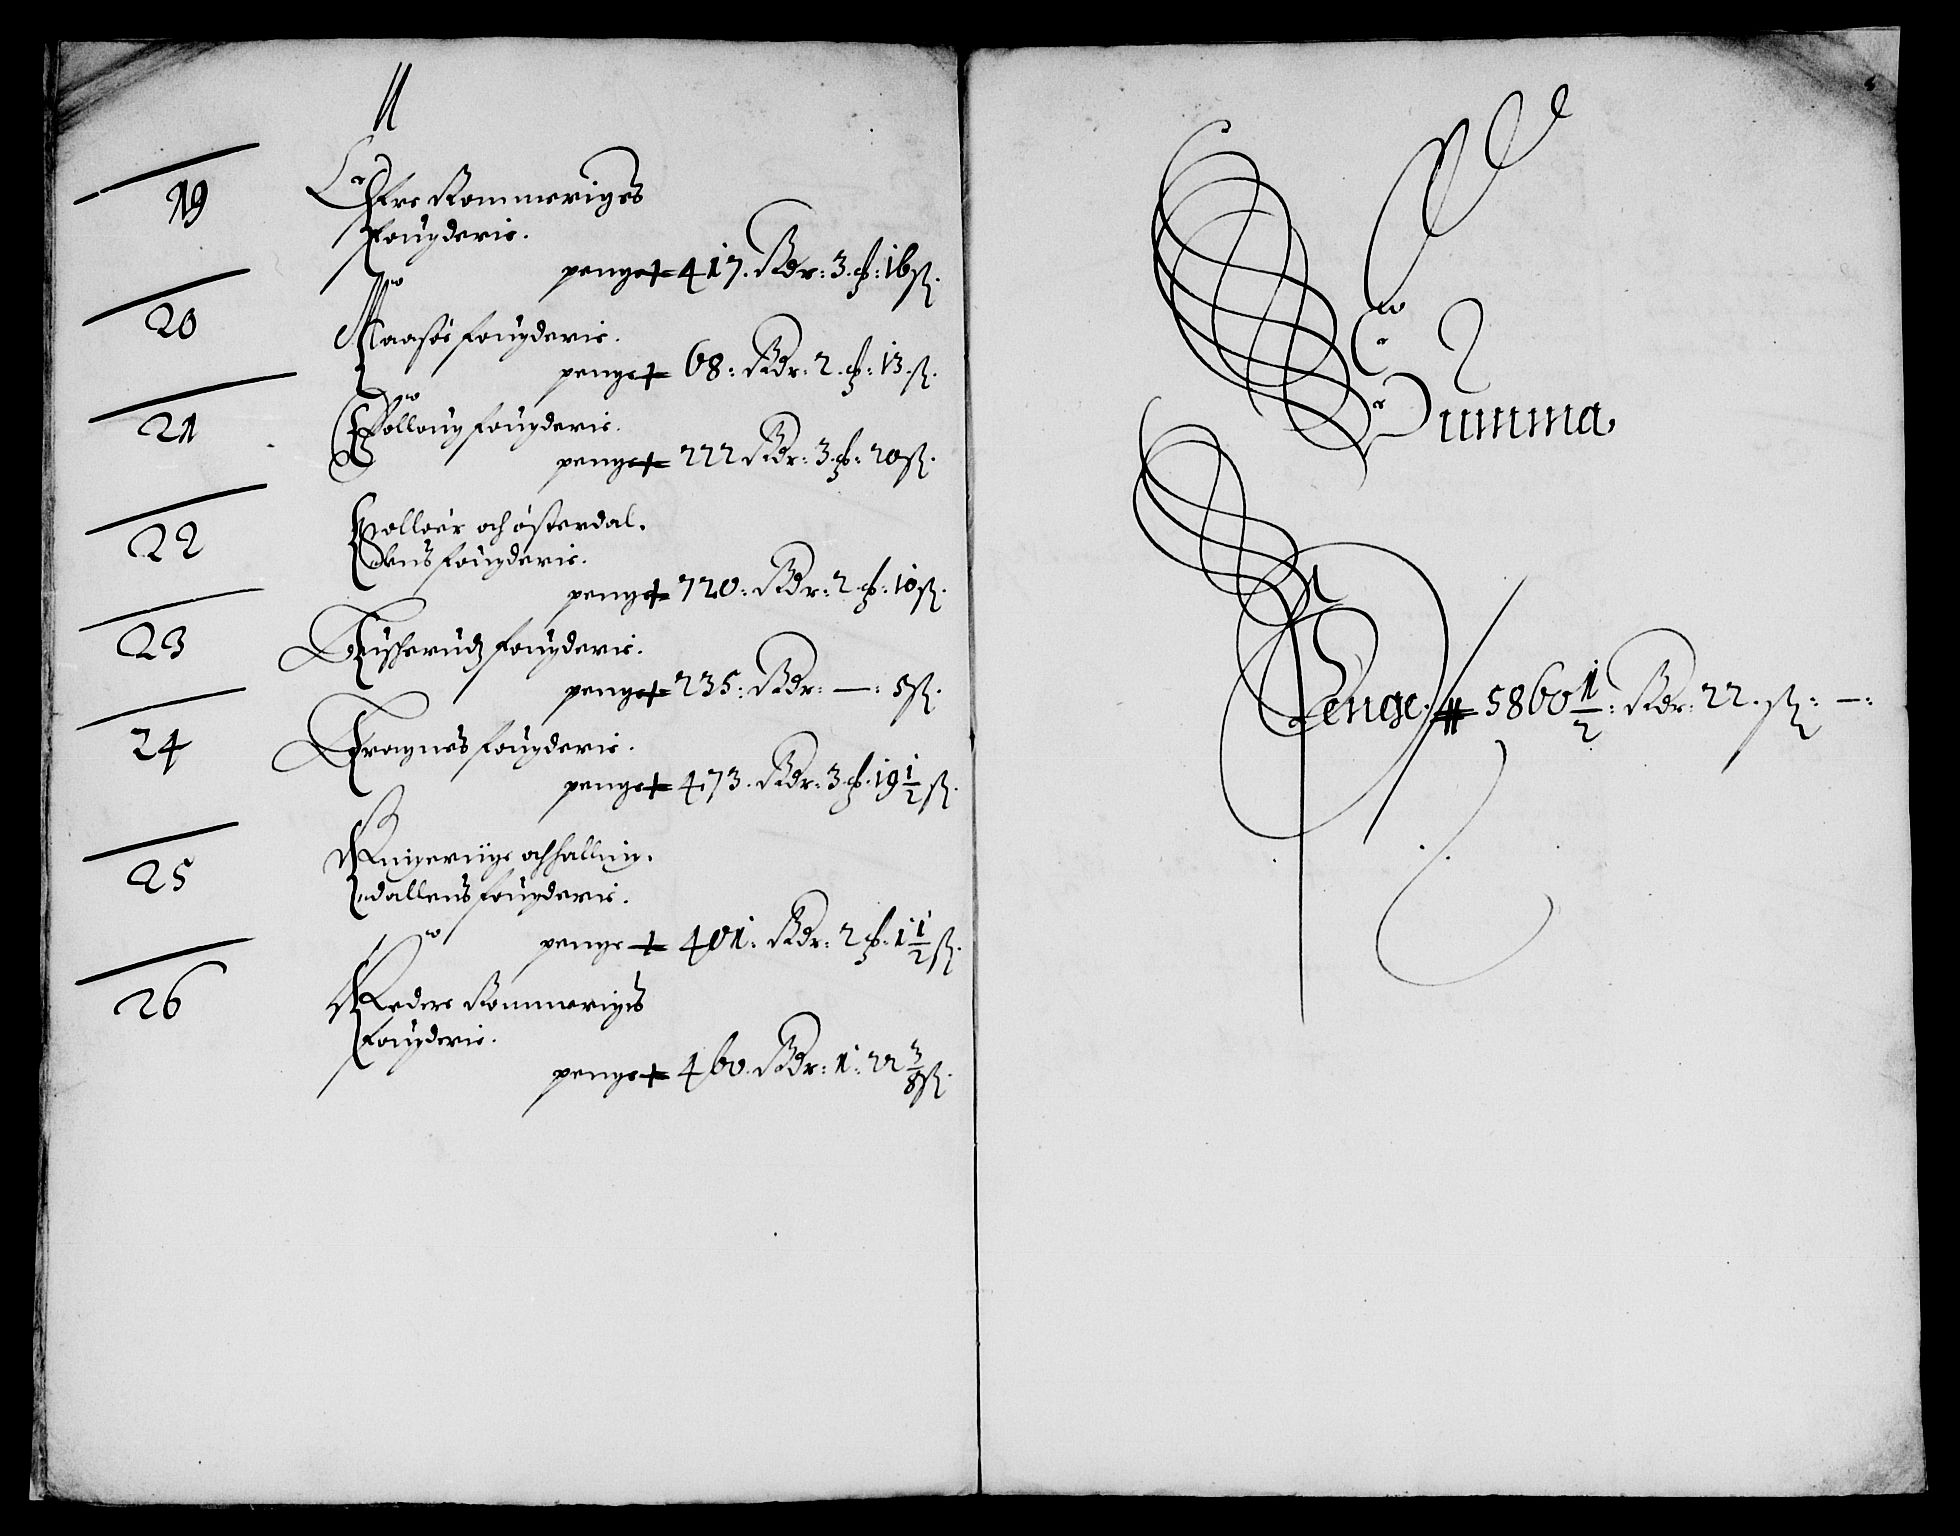 19
Øfre Rommeriges
fougderie.
penge 417. Rdr: 3. ȹ: 16 ß.
20
fougderie.
penge 68: Rdr: 2. ȹ: 13. ß.
21
Folloug fougderie.
penge 222 Rdr: 3. ȹ: 20 ß.
22
Soloer och østerdal.
lens fougderie.
penge 720: Rdr: 2. ȹ: 10 ß.
23
Busherudz fougderie.
penge 235: Rdr: —: 5 ß.
24
fougderie.
penge 473. Rdr: 3. ȹ. 19 1/2 ß.
25
Ringeriige och halling.
dallens fougderie.
penge 401: Rdr: 2 ȹ: 1 1/2 ß.
26
Nedere Rommeriges
fougderie.
penge 460. Rdr: 1: 22 3/8 ß.
Summa
Penge. 5860 1/2: Rdr: 22. ß: —: